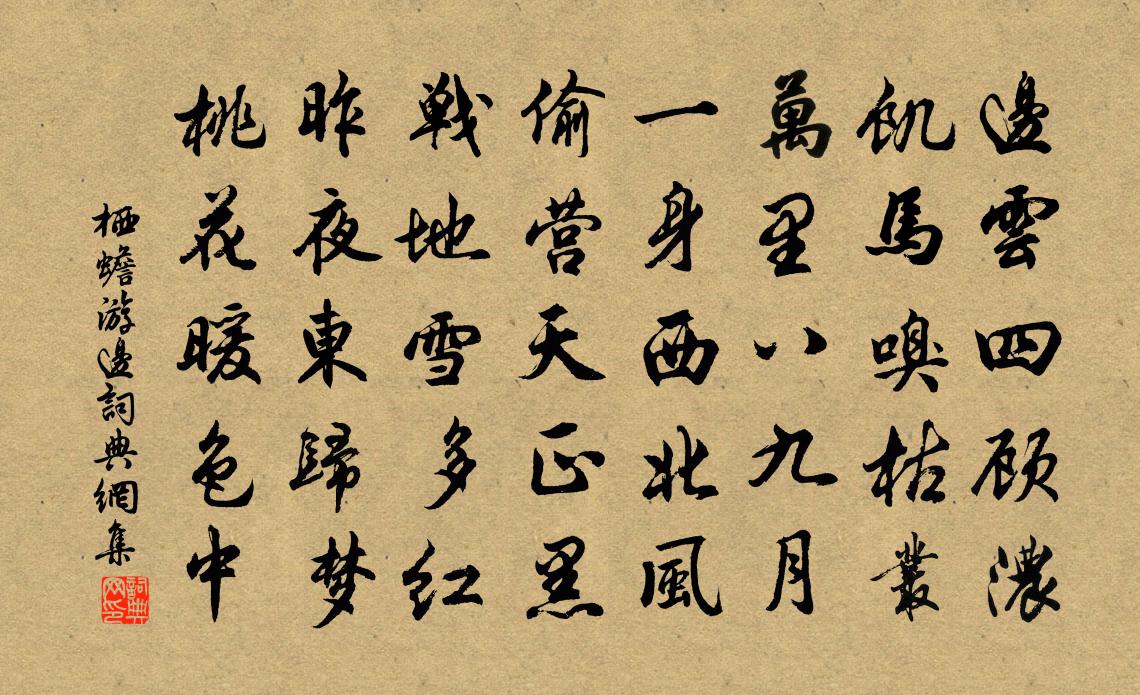 邊雲四顾濃
飢馬嗅枯叢
萬里八九月
一身西北風
偷营天正黑
戰地雪多紅
昨夜東歸梦
桃花暖色中
栖蟾游邊詞典網集
詞典网印